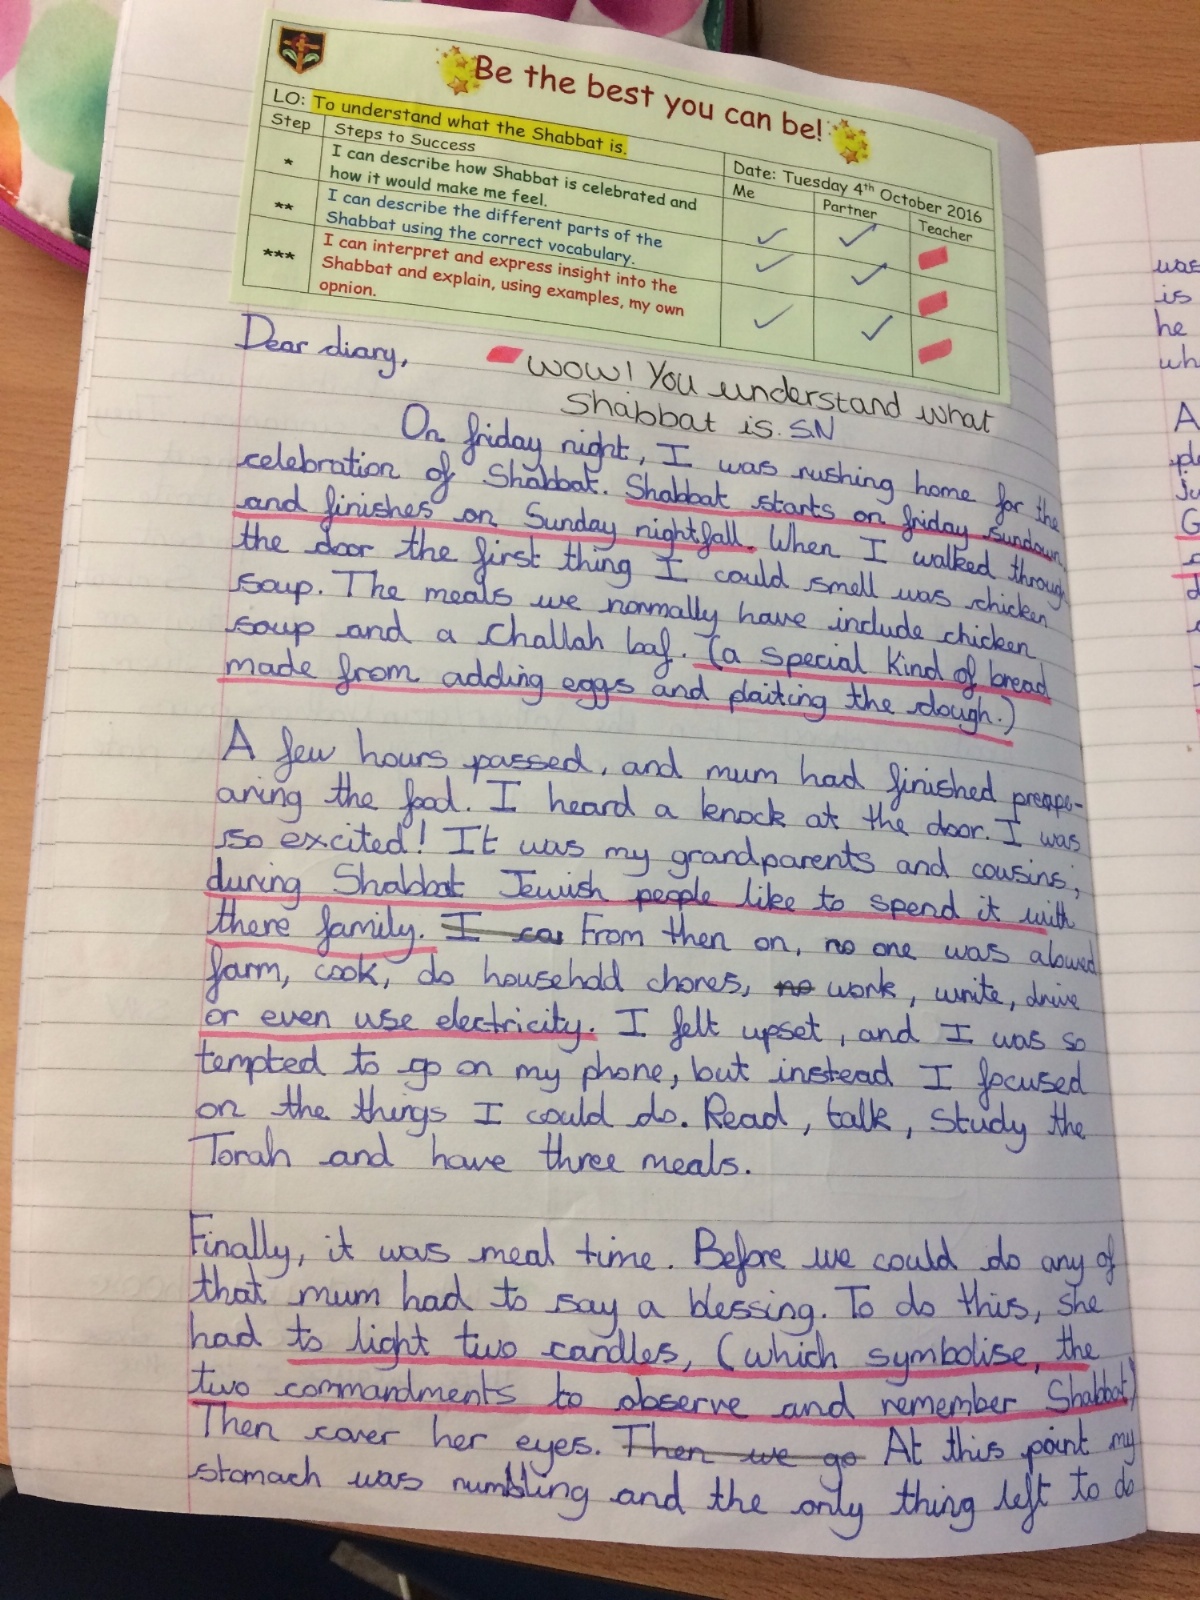 Be the best you can be!
LO: To understand what the Shabbat is.
Date: Tuesday 4th October 2016
Step
Steps to Success
Me
Partner
Teacher
*
I can describe how Shabbat is celebrated and
how it would make me feel.
**
I can describe the different parts of the
Shabbat using the correct vocabulary.
***
I can interpret and express insight into the
Shabbat and explain, using examples, my own
opnion.
Dear diary,
WOW! You understand what
Shabbat is. SN
On friday night, I was rushing home for the
celebration of Shabbat. Shabbat starts on friday sundown
and finishes on Sunday nightfall. When I walked through
the door the first thing I could smell was chicken
soup. The meals we normally have include chicken
soup and a Challah loaf. (a special kind of bread
made from adding eggs and plaiting the dough.)
A few hours passed, and mum had finished preape-
aring the food. I heard a knock at the door. I was
so excited! It was my grandparents and cousins;
during Shabbat Jewish people like to spend it with
there family. I From then on, no one was alowed
farm, cook, do household chores, no work, write, drive
or even use electricity. I felt upset, and I was so
tempted to go on my phone, but instead I focused
on the things I could do. Read, talk, study the
Torah and have three meals.
Finally, it was meal time. Before we could do any of
that mum had to say a blessing. To do this, she
had to light two candles, (which symbolise, the
two commandments to observe and remember Shabbat)
Then cover her eyes. Then we go At this point my
stomach was rumbling and the only thing left to do
was
is
he
wh
A
G